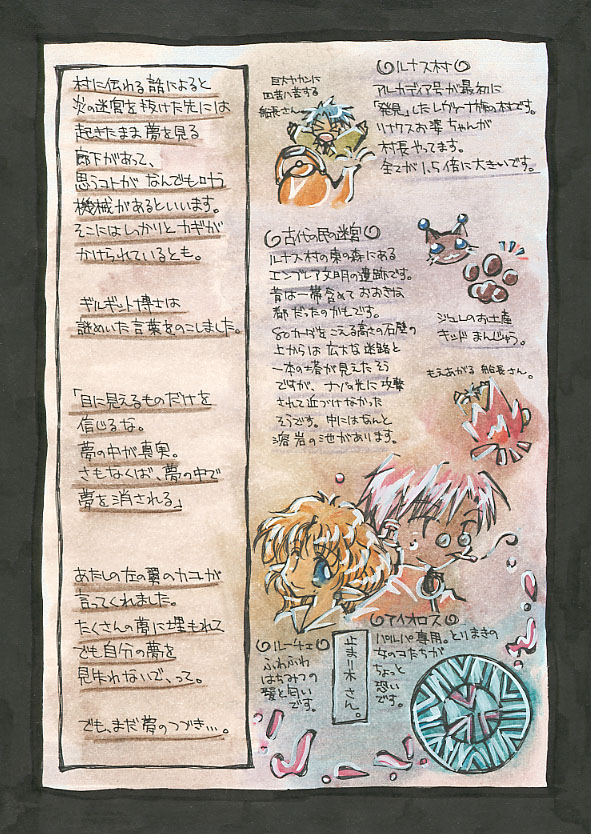 村に伝わる話によると
炎の迷宮を抜けた先には
起きたまま夢を見る
廊下があって、
思うコトがなんでも叶う
機械があるといいます。
そこにはしっかりとカギが
かけられているとも。
ギルギット博士は
謎めいた言葉をのこしました。
「目に見えるものだけを
信じるな。
夢の中が真実。
さもなくば、夢の中で
夢を消される」
あたしの左の翼のカコが
言ってくれました。
たくさんの夢に埋もれて
でも自分の夢を
見失わないで、って。
でも、まだ夢のつづき…。
巨大ヤカンに
四苦八苦する
船長さん
ルナス村
アルカディア号が最初に
「発見」したレヴァーナ族の村です。
リナクスお婆ちゃんが
村長やってます。
全てが1.5倍に大きいです。
古代の民の迷宮
ルナス村の東の森にある
エンプレア文明の遺跡です。
昔は一帯含めておおきな
都だったのかもです。
80カードをこえる高さの石壁の
上からは広大な迷路と
一本の塔が見えたそう
ですが、ナゾの光に攻撃
されて近づけなかった
そうです。中にはなんと
溶岩の池があります。
ジュレのお土産
キッドまんじゅう。
もえあがる船長さん。
ルーチェ
ふわふわ
はちみつの
髪と匂い
です。
止まり木さん。
アイオロス
パルパ専用。とりまきの
女のコたちが
ちょっと
恐い
です。